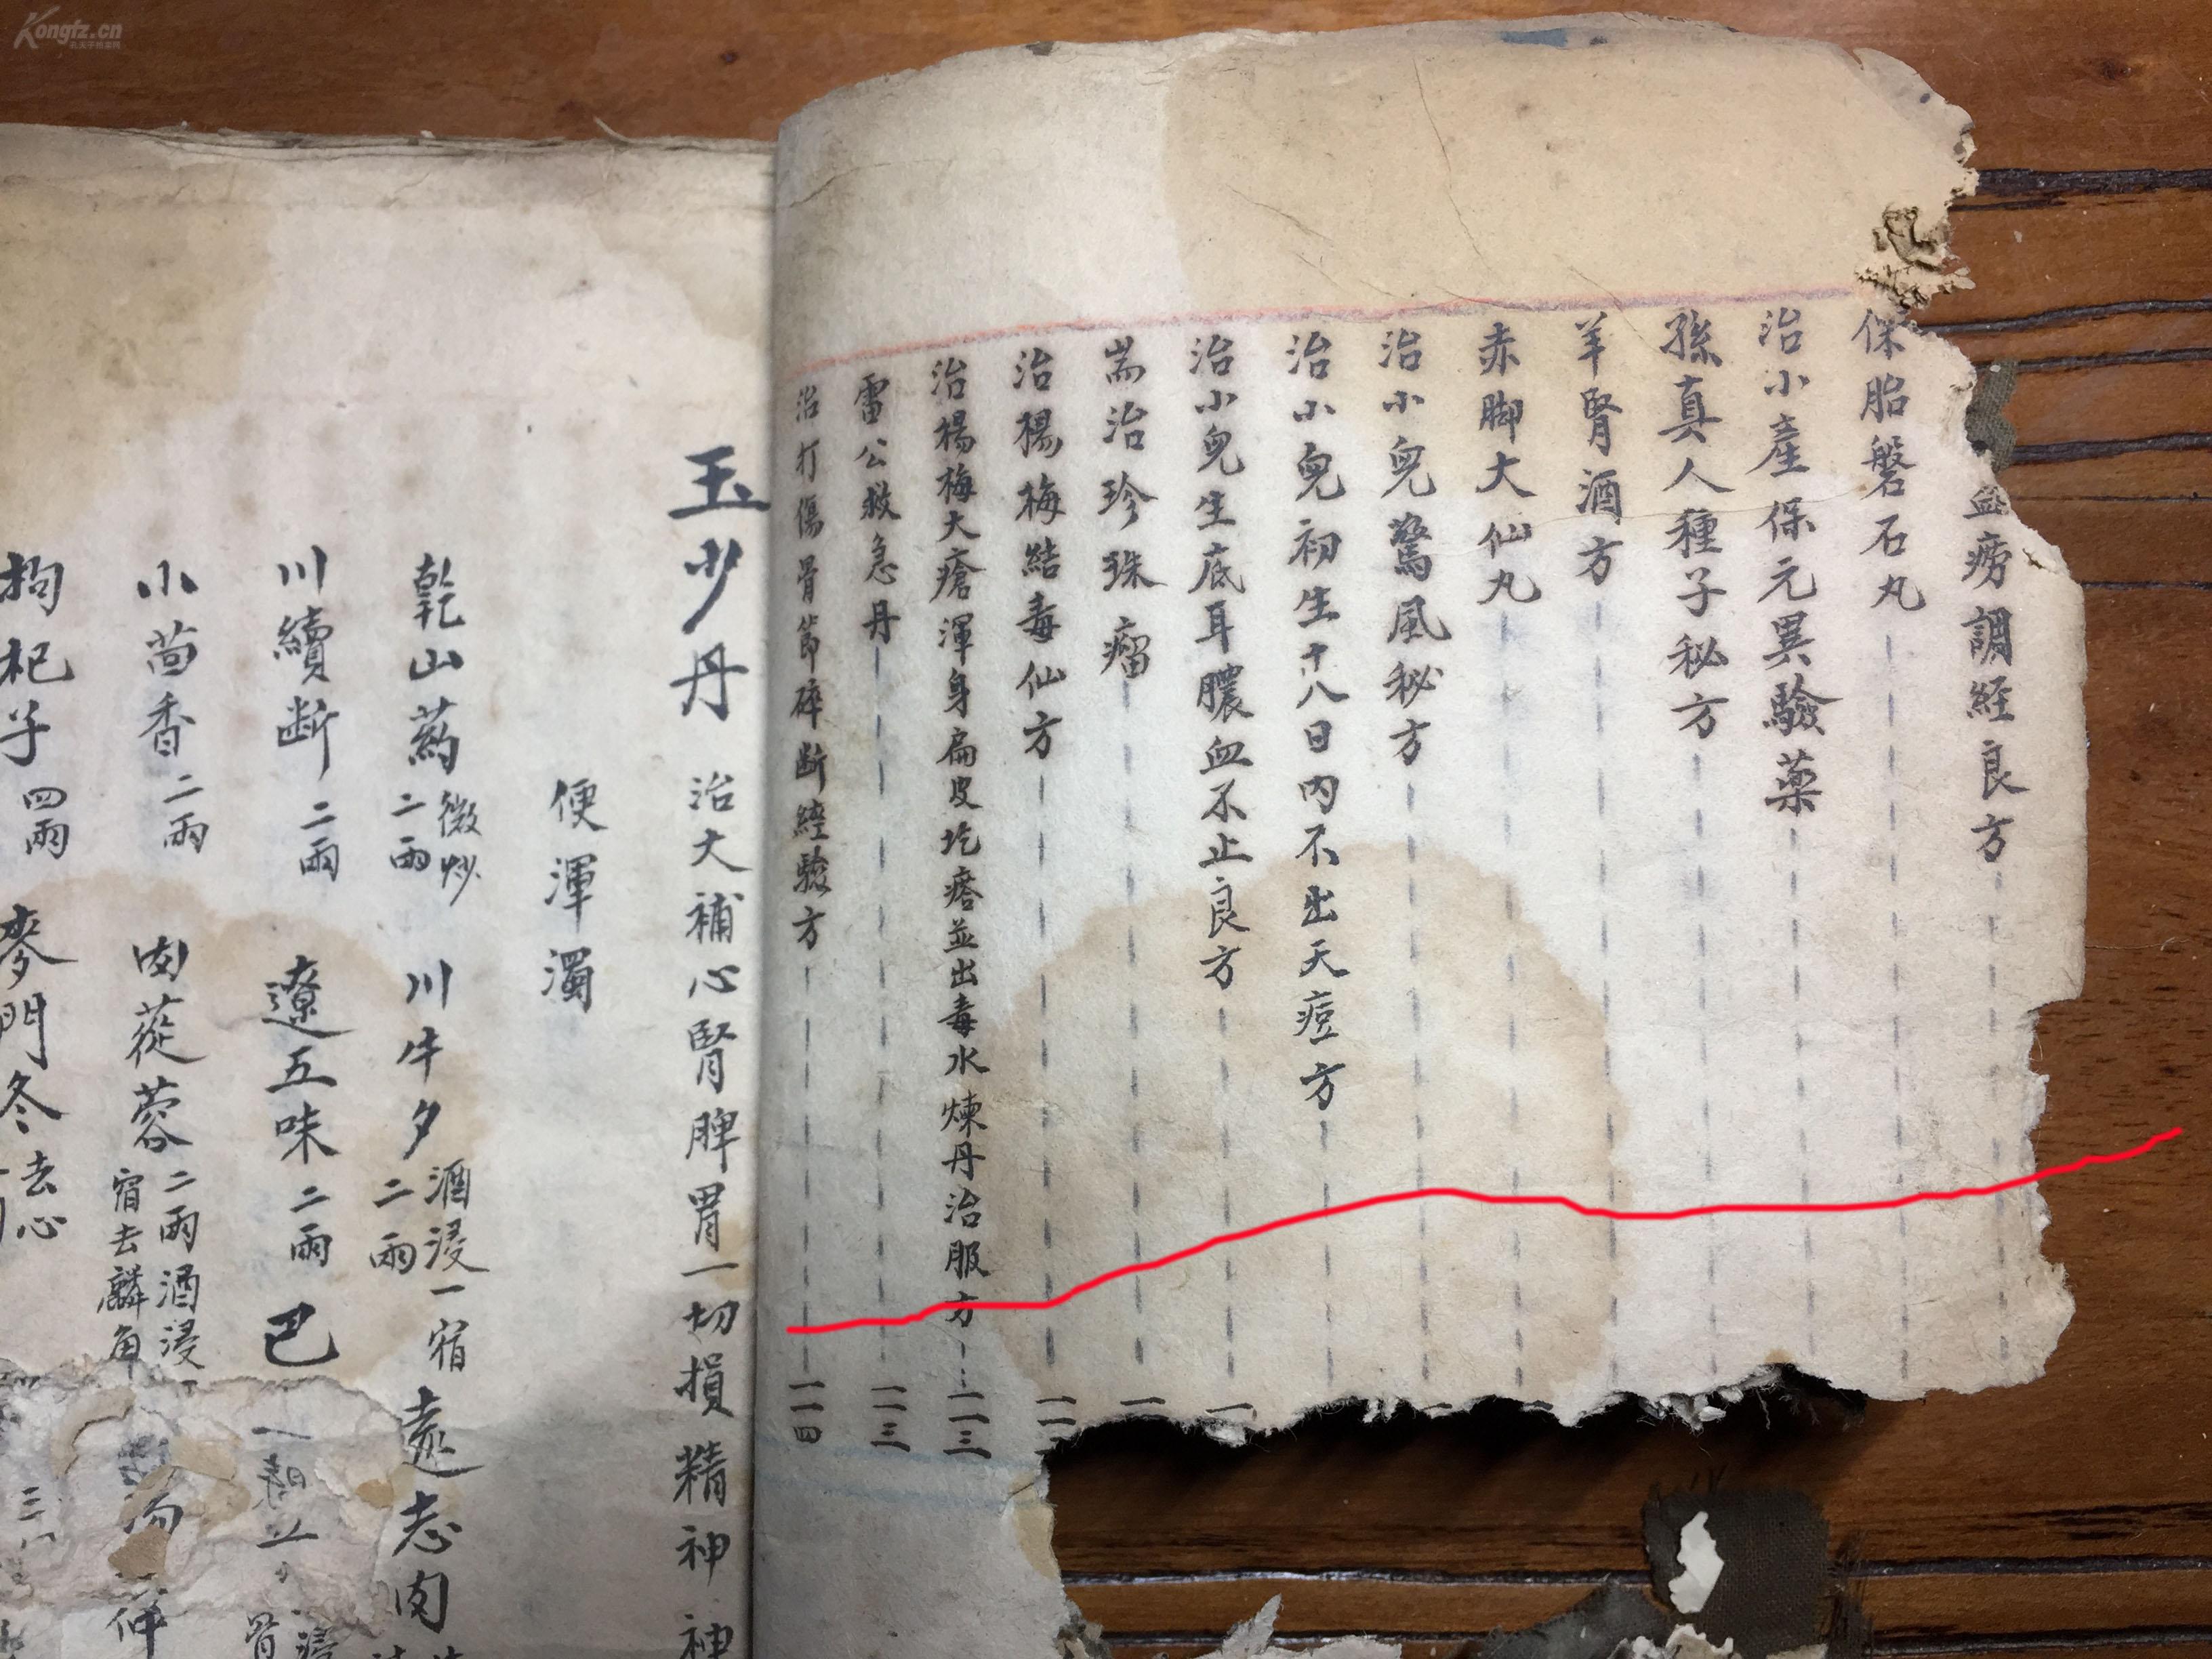 Kongfz.cn
血癆調経良方
保胎磐石丸
治小產保元異驗藥
孫真人種子秘方
羊腎酒方
赤脚大仙丸
治小兒驚風秘方
治小兒初生十八日内不出天痘方
治小兒生底耳膿血不止良方
耑治珍珠瘤
治楊梅結毒仙方
治楊梅大瘡渾身扁皮圪瘩並出毒水煉丹治服方 一一三
雷公救急丹 一一三
治打傷骨節碎断經驗方 一一四
玉少丹 治大補心腎脾胃一切損精神神
便渾濁
乾山葯 微炒二兩 川牛夕 酒浸一宿二兩 遠志肉
川續断 二兩 遼五味 二兩 巴
小茴香 二兩 肉蓯蓉 二兩酒浸宿去麟角
枸杞子 四兩 麥門冬 去心